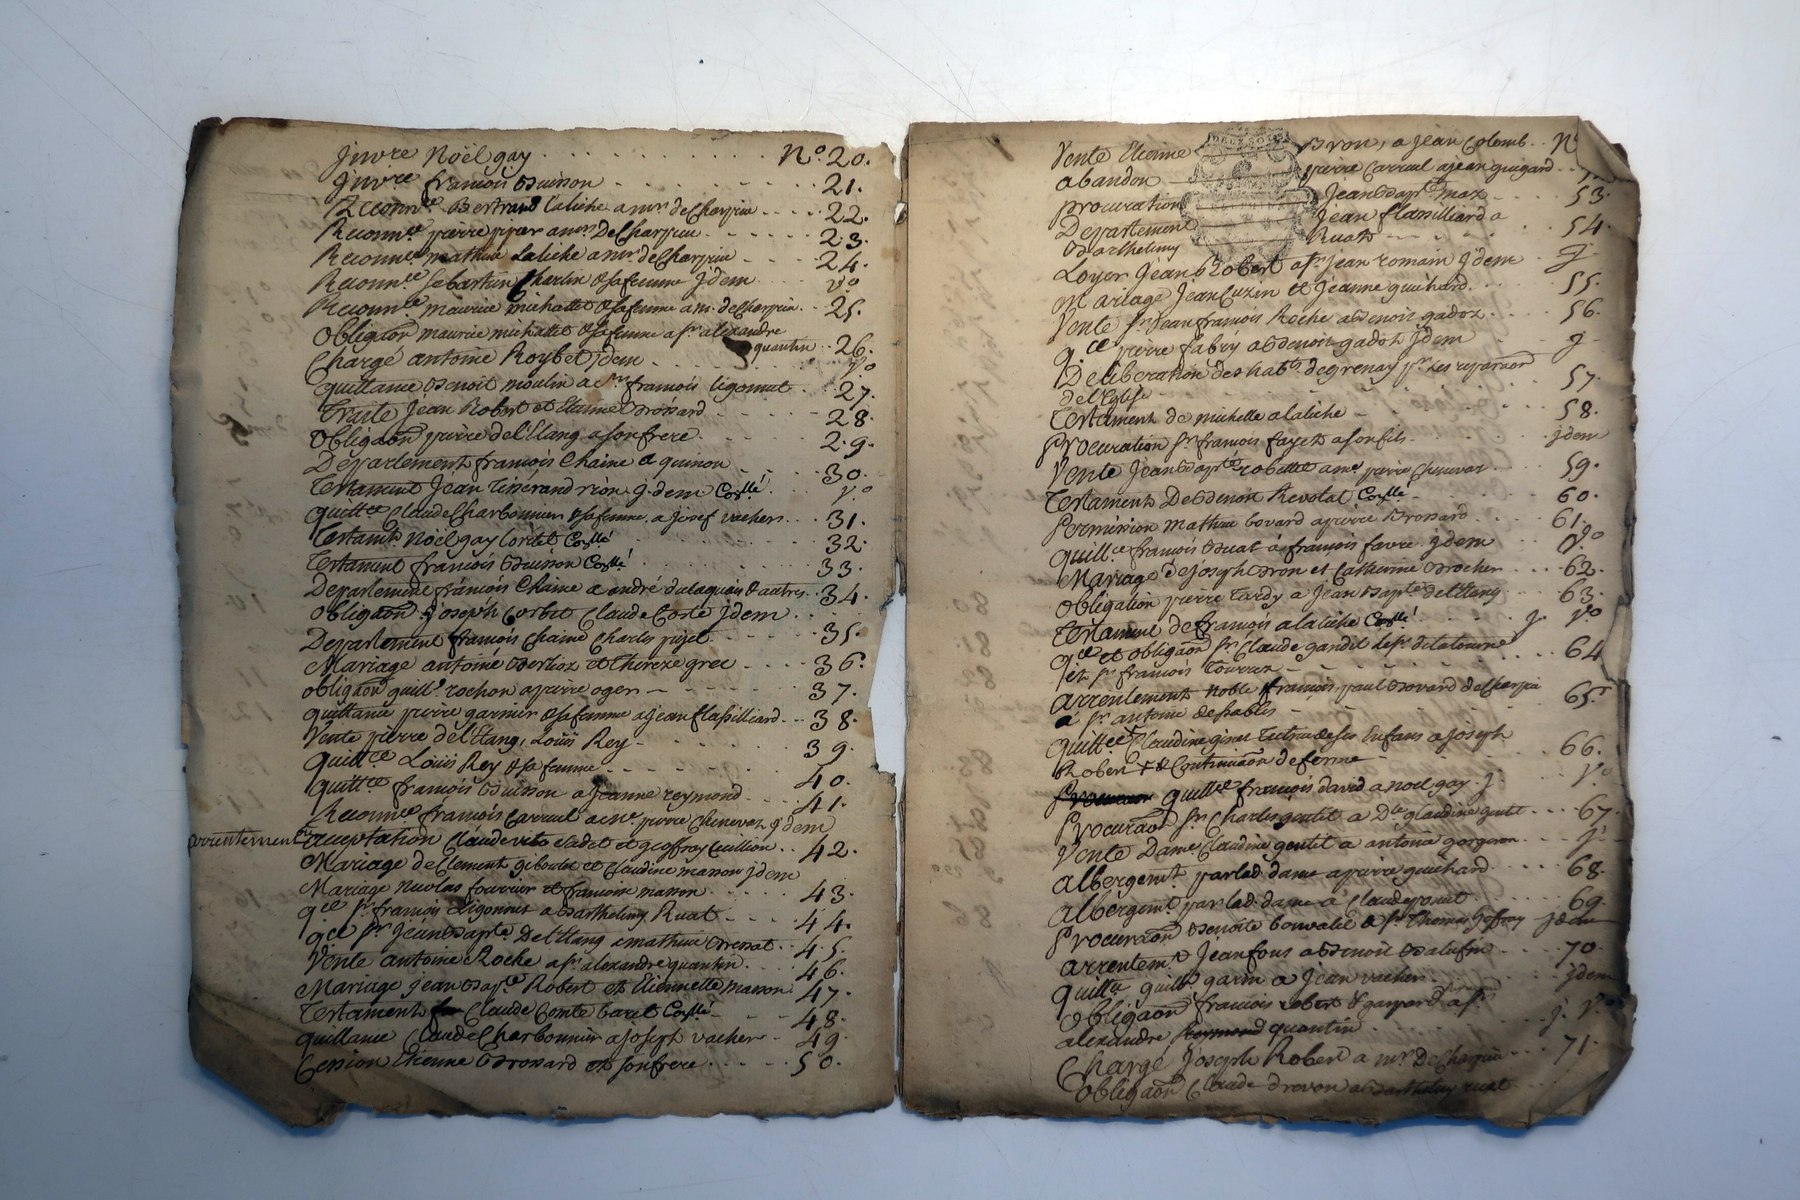 Invre Noël gay . . . . . . . . . . N.º 20.
Invre francois Buisson . . . . . . . . 21.
Reconn.ce Bertrand laliche a mr de Charpin . . . . 22.
Reconn.ce pierre a mr De Charpin . . . . . . 23.
Reconn.ce mathieu Laliche a mr de Charpin . . . . 24.
Reconn.ce sebastien & sa femme Jdem . . . v.º
Reconn.ce maurice michallet & sa femme a m. de Charpin . . 25.
Obligaôn maurice michallet & sa femme a s.r alexandre
quantin . . 26.
Chargé antoine Roybet jdem . . . . v.º
quittance Benoit moulin a s.r francois ligonnet . . 27.
Traité Jean Robert et Etienne Brossard . . . . 28.
Obligaôn pierre de l'Etang a son frere . . . . 29.
Departement francois Chaine a quinon . . . . 30.
Testament Jean Tisserand rion j. dem Coṡllé . . v.º
quitt.ce Claude Charbonnier & sa femme a josef vacher . . . 31.
Testam.t Noël gay Coṡllé . . . . . 32.
Testament francois Buisson Coṡllé . . . . . 33.
Departement francois Chaine a andré & autres . 34.
Obligaôn joseph Corbet Claude Coste jdem . . .
Departement francois Chaine Charles pujet . . . . 35.
Mariage antoine Berlioz et Thereze grec . . . . 36.
obligaôn guill.e rochon a pierre oger — . . . . 37.
quittance pierre garnier & sa femme a jean flassilliard . . 38.
Vente pierre de l'Etang, Louis Rey - . . . . 39.
quitt.ce Louis Rey & sa femme - - - - - - 40.
quitt.ce francois Buisson a Jeanne reymond . . . 41.
Reconn.ce francois Carruel a me pierre Chenevez jdem
arrentement acceptation Claude Cadet et geoffroy Cuillion . . 42.
Mariage de Clement giboulet et Claudine masson jdem
Mariage Nicolas fournier et francoise masson . . . . 43.
q.ce s.r francois Ligonnet a Barthelmy Ruat . . . 44.
q.ce s.r jean Bap.te De l'Etang a mathieu Bressat . . 45.
Vente antoine Roche a s.r alexandre quantin . . . 46.
Mariage jean Bap.te Robert et Etiennette masson . 47.
Testament Claude Comte Coṡllé . . . 48.
quittance Claude Charbonnier a Joseph vacher - 49.
Cession Etienne Brossard et son frere . . . . . 50.
Vente Etienne Bron, a Jean Colomb . N
abandon pierre Carruel a jean guigard . . .
procuration Jean Bap.te max . . . 53.
Departement Jean flassilliard a
Barthelmy Ruat - - - - 54.
Loyer Jean Robert a s.r jean romain jdem . . j
Mariage Jean Cuzin et Jeanne guichard . . . 55.
Vente s.r Jean francois Roche a Benoit gadoz . . . . 56.
q.ce pierre fabry a Benoit gadoz Jdem . . . j
Deliberation des hab.ts de grenay p.r les reparaôn
de l'Eglise . . . . . . . . 57.
Testament de michelle a laliche - . . . . . 58.
Procuration s.r francois fayet a son fils . . . . jdem
Vente Jean Bap.te robellet a me pierre Chenevez . . . 59.
Testament De Benoit Revolat Coṡllé . . . . 60.
Permission mathieu bovard a pierre Brossard . . . . 61.
quitt.ce francois Buat à francois favre jdem . . v.º
Mariage de Joseph Bron et Catherine Brocher . . . 62.
Obligation pierre Tardy a Jean Bapt.e de l'Etang . . . 63.
Testament de francois a laliche Coṡllé . . . . j. v.º
q.ce et obligaôn s.r Claude gandil
et s.r francois Tourrez - - - - - - 64
arrentement Noble francois paul Bovard de Charpin
a s.r antoine Desables - - - - 65.
quitt.ce Claudine ginet Tutrice de ses Enfans a Joseph
Robert & Continuaôn de ferme - . . . 66.
quitt.ce francois david a noel gay j. . . v.º
Procuraôn s.r Charles gentil a D.lle Claudine gentil . . . 67.
Vente Dame Claudine gentil a antoine gorgeron . . . j.
Albergem.t par lad. dame a pierre guichard . . . . 68.
Albergem.t par lad. dame a Claude . . . . . 69.
Procuraôn Benoite bouvalié a s.r Thomas joffray jdem
arrentem.t Jean fous a Benoit Balufin . . . . 70.
quitt.ce guill.e garin a Jean vacher . . . . . jdem
Obligaôn francois robert & gaspard a s.r
alexandre quantin . . . . . . j. v.º
Chargé Joseph Robert a mr De Charpin . . . 71.
Obligaôn Claude Drevon a Barthelmy ruat . . .